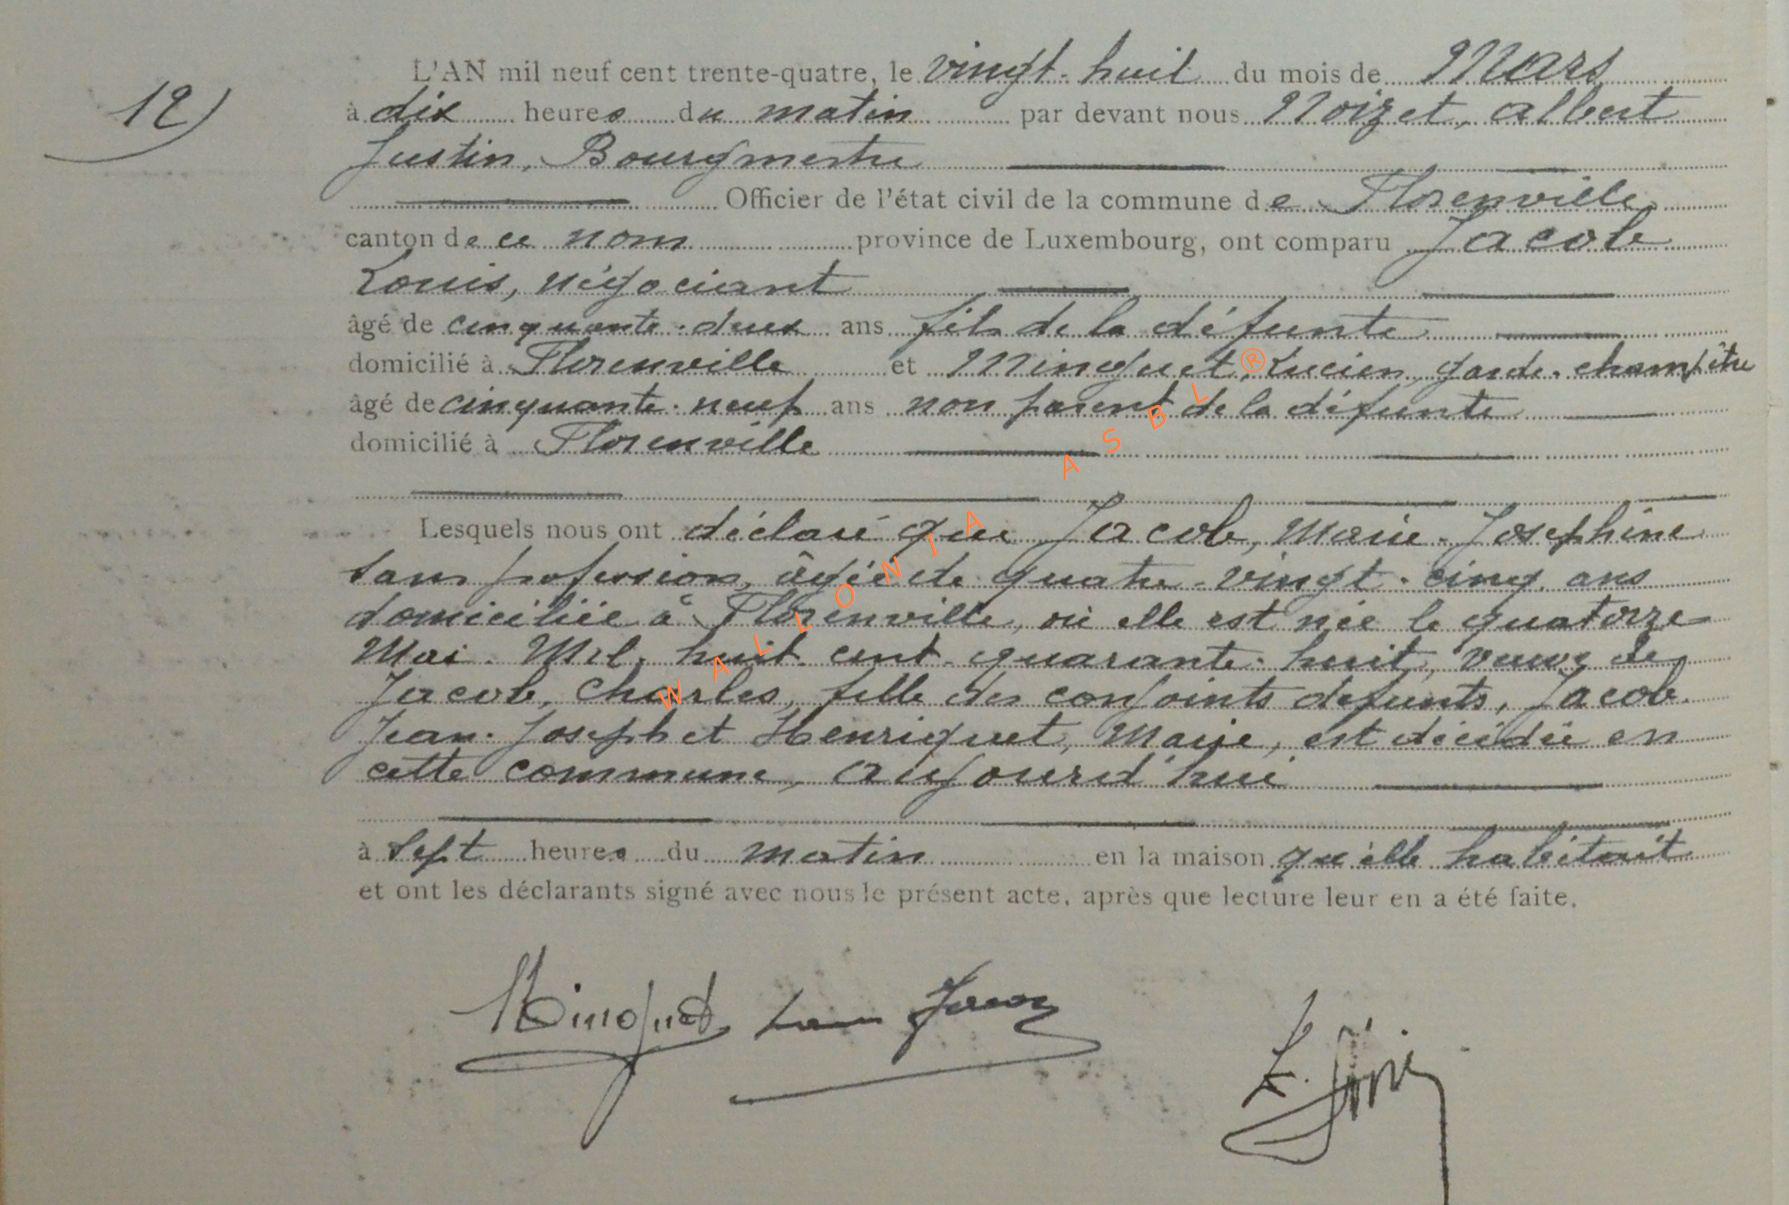 12)
L'AN mil neuf cent trente-quatre, le vingt-huit du mois de Mars
à dix heures du matin par devant nous Noizet, Albert
Justin, Bourgmestre
Officier de l'état civil de la commune de Florenville
canton de ce nom province de Luxembourg, ont comparu Jacob
Louis, négociant
âgé de cinquante-deux ans fils de la défunte
domicilié à Florenville et Minguet, Lucien, garde-champêtre
âgé de cinquante-neuf ans non parent de la défunte
domicilié à Florenville
Lesquels nous ont déclaré que Jacob, Marie-Josephine
sans profession, âgée de quatre-vingt-cinq ans
domiciliée à Florenville, où elle est née le quatorze
Mai-Mil-huit-cent-quarante-huit, veuve de
Jacob, Charles, fille des conjoints défunts, Jacob
Jean-Joseph et Henriquet, Marie, est décédée en
cette commune, aujourd'hui
à sept heures du matin en la maison qu'elle habitait
et ont les déclarants signé avec nous le présent acte, après que lecture leur en a été faite.
Minguet Louis Jacob
WALLONIA ASBL ®